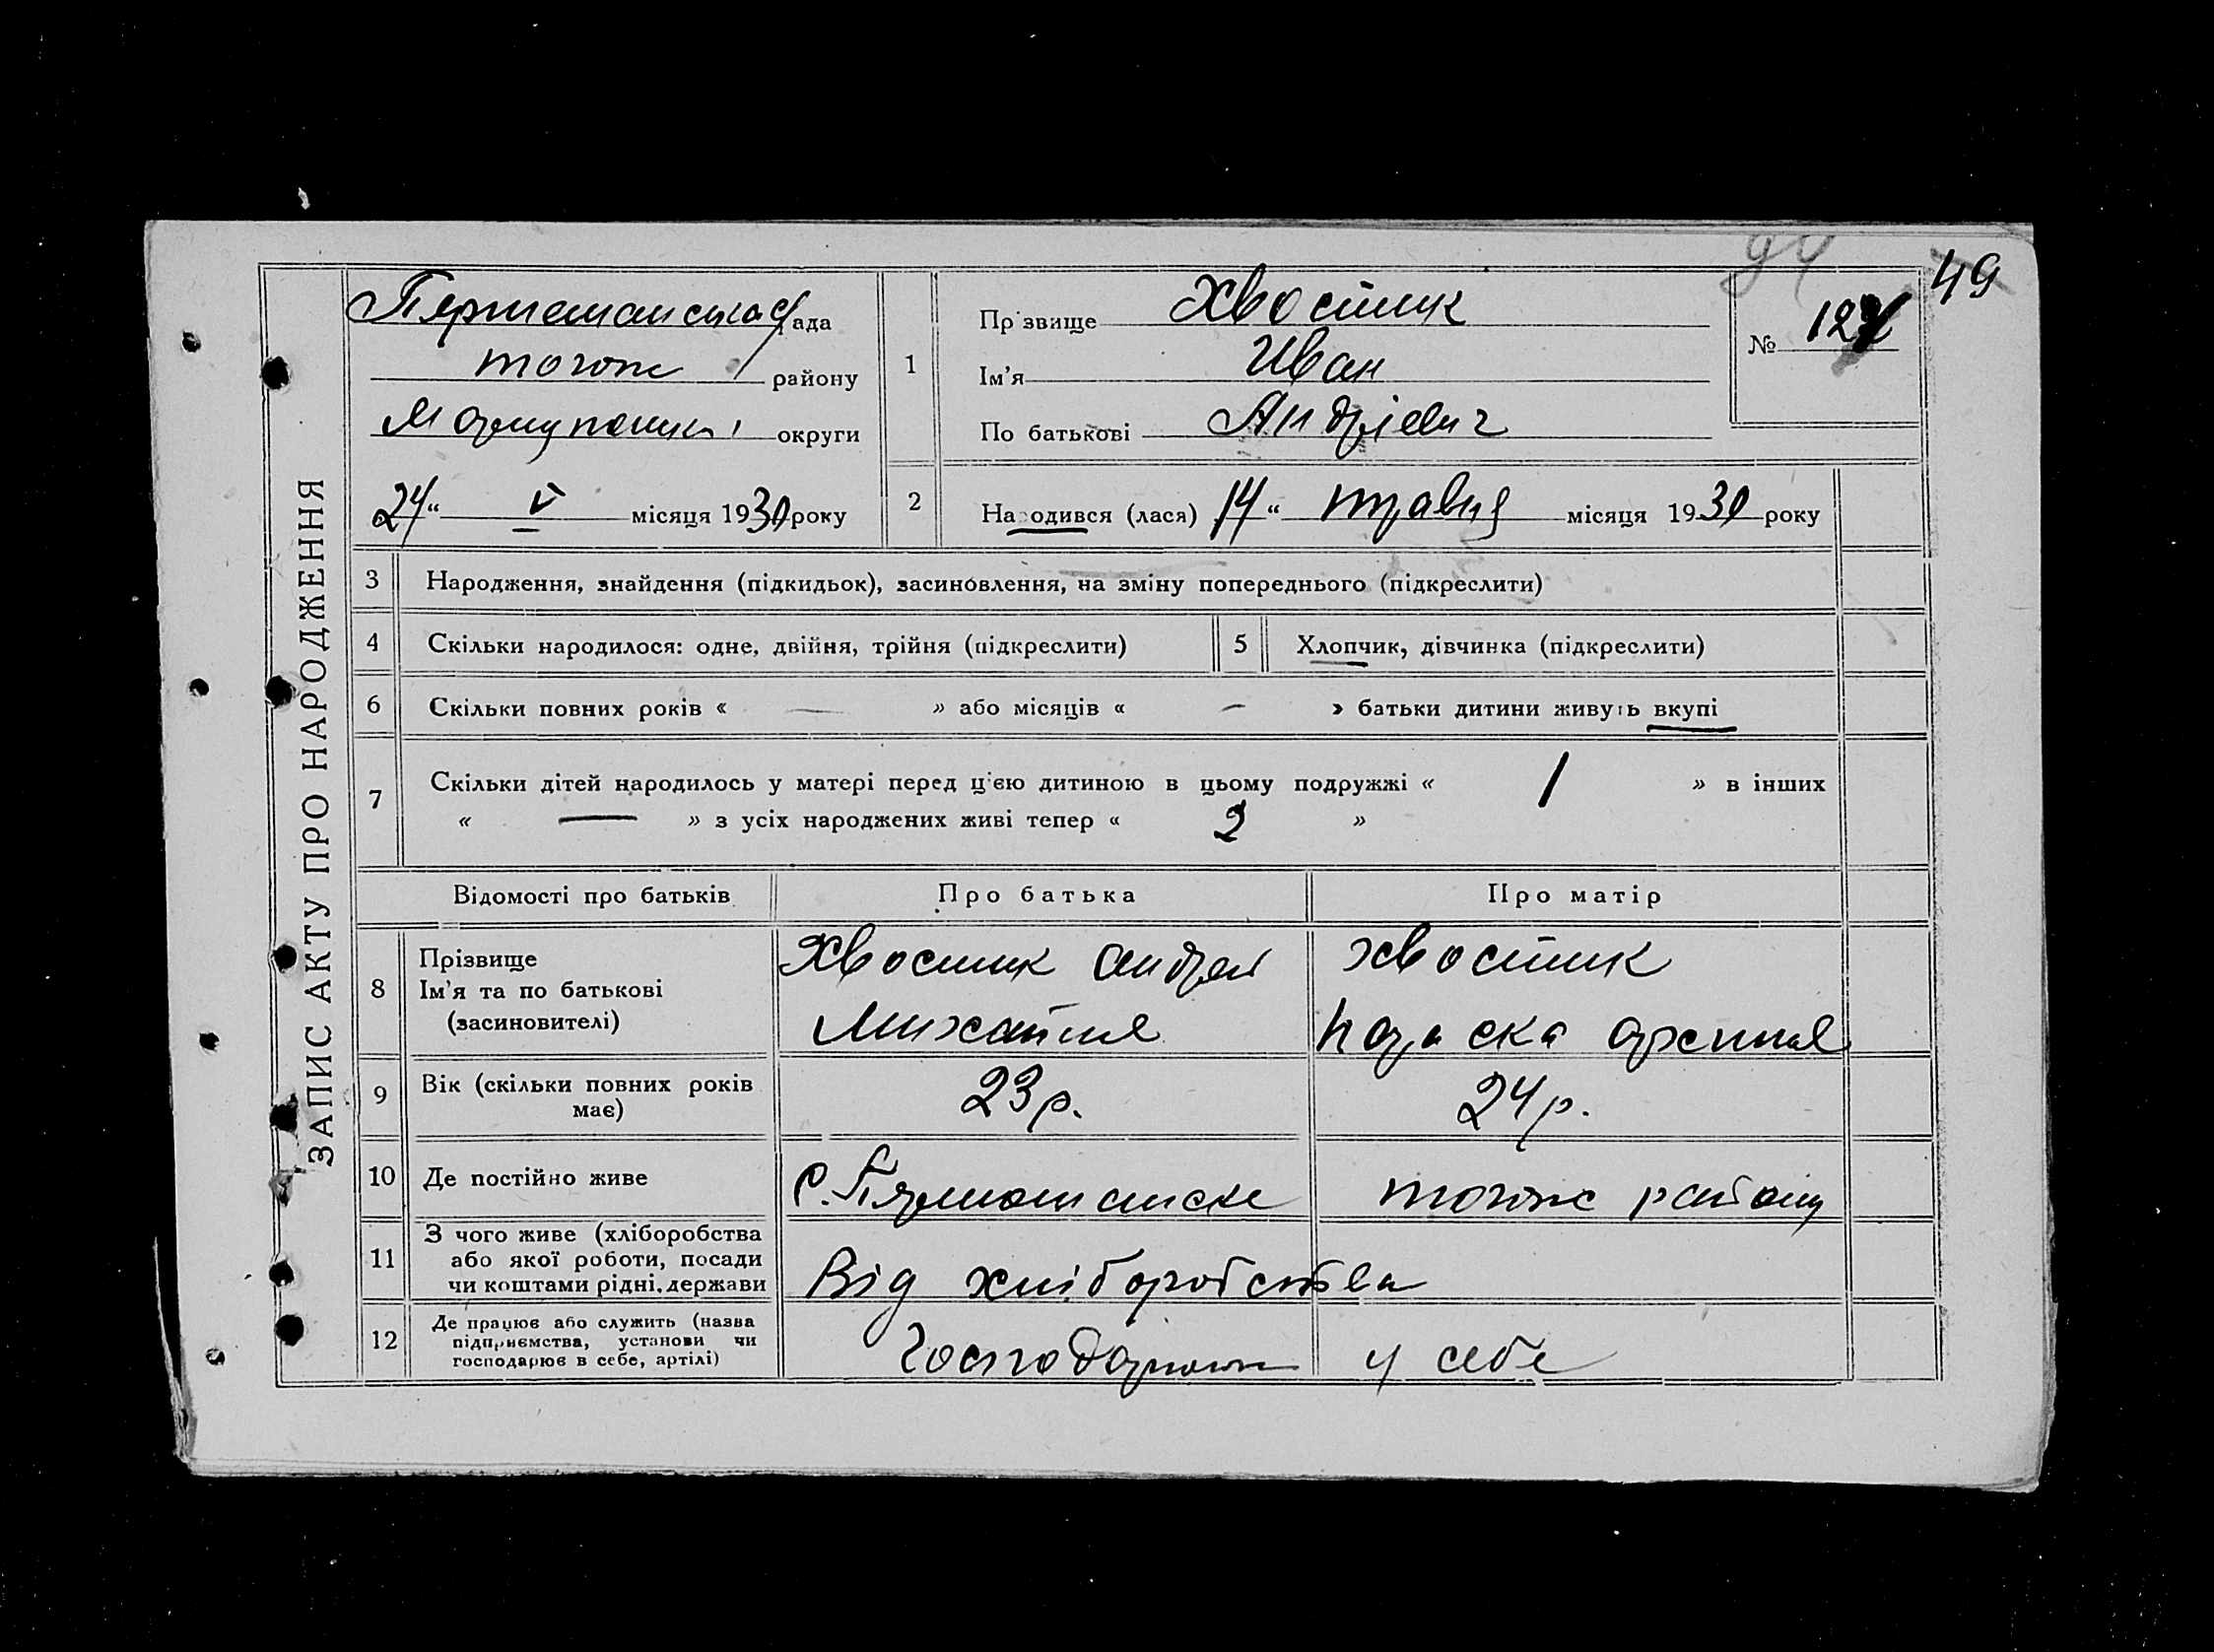 ЗАПИС АКТУ ПРО НАРОДЖЕННЯ
94
49
рада
тогож району
Маріупольськ. округи
24 “ V місяця 1930 року
1
Прізвище Хвостик
Ім'я Иван
По батькові Андрієвич
№ 127
2
Народився (лася) 14 “ травня місяця 1930 року
3 Народження, знайдення (підкидьок), засиновлення, на зміну попереднього (підкреслити)
4 Скільки народилося: одне, двійня, трійня (підкреслити)
5 Хлопчик, дівчинка (підкреслити)
6 Скільки повних років « — » або місяців « — » батьки дитини живуть вкупі
7 Скільки дітей народилось у матері перед ц'єю дитиною в цьому подружжі « 1 » в інших
« — » з усіх народжених живі тепер « 2 »
Відомості про батьків
Про батька
Про матір
8
Прізвище
Ім'я та по батькові
(засиновителі)
Хвостик Андрей
Михайлов
Хвостик
Параска
9
Вік (скільки повних років
має)
23 р.
24 р.
10 Де постійно живе
с.
тогож району
11
З чого живе (хліборобства
або якої роботи, посади
чи коштами рідні, держави
Від хліборобства
12
Де працює або служить (назва
підприємства, установи чи
господарює в себе, артілі)
Господарюют у себе